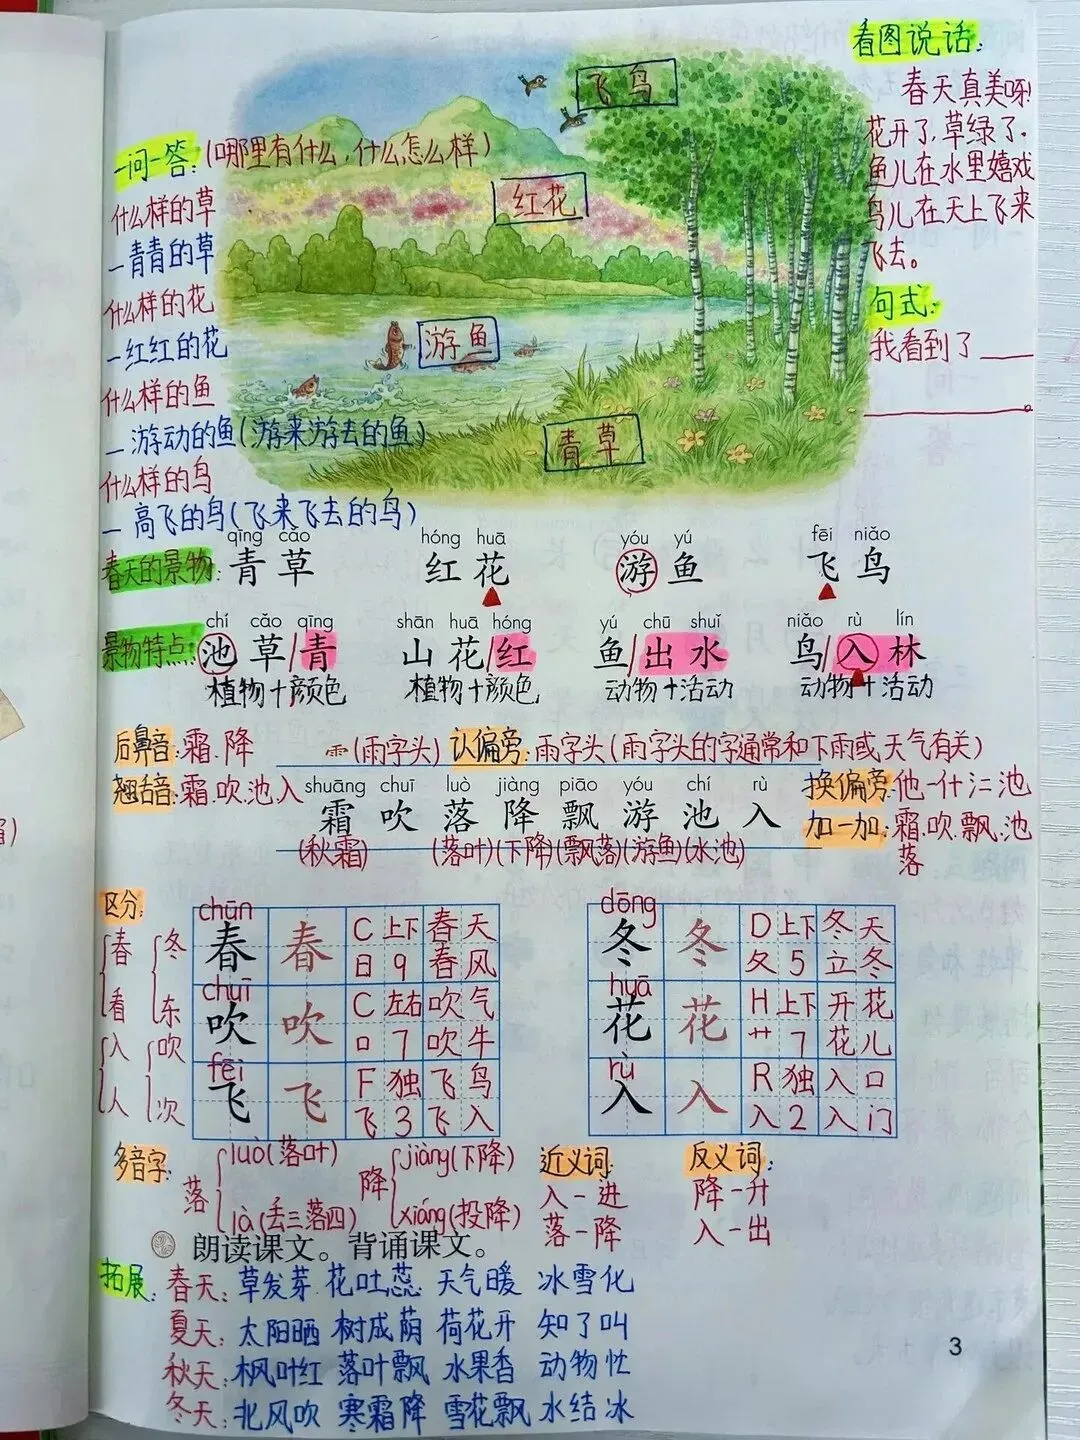 看图说话:
春天真美呀!
花开了,草绿了.
鱼儿在水里嬉戏
鸟儿在天上飞来
飞去。
句式:
我看到了
。
飞鸟
红花
游鱼
青草
一问一答:(哪里有什么,什么怎么样)
什么样的草
—青青的草
什么样的花
—红红的花
什么样的鱼
—游动的鱼(游来游去的鱼)
什么样的鸟
—高飞的鸟(飞来飞去的鸟)
qīng cǎo hóng huā yóu yú fēi niǎo
春天的景物:青草 红花 游鱼 飞鸟
chí cǎo qīng shān huā hóng yú chū shuǐ niǎo rù lín
景物特点:池草/青 山花/红 鱼/出水 鸟/入林
植物+颜色 植物+颜色 动物+活动 动物+活动
后鼻音:霜.降 ⻗(雨字头) 认偏旁:雨字头(雨字头的字通常和下雨或天气有关)
翘舌音:霜.吹.池.入
shuāng chuī luò jiàng piāo yóu chí rù
霜 吹 落 降 飘 游 池 入
(秋霜) (落叶)(下降)(飘落)(游鱼)(水池)
换偏旁:他-亻+氵=池
加一加:霜.吹.飘.池
落
区分:
春 看
冬 东
入 人
吹 次
chūn
春 春 C 上下 春天
日 9 春风
chuī
吹 吹 C 左右 吹气
口 7 吹牛
fēi
飞 飞 F 独 飞鸟
飞 3 飞入
dōng
冬 冬 D 上下 冬天
夂 5 立冬
huā
花 花 H 上下 开花
艹 7 花儿
rù
入 入 R 独 入口
入 2 入门
多音字:
落 luò(落叶) là(丢三落四)
降 jiàng(下降) xiáng(投降)
近义词:
入-进
落-降
反义词:
降-升
入-出
朗读课文。背诵课文。
拓展:春天:草发芽 花吐蕊 天气暖 冰雪化
夏天:太阳晒 树成荫 荷花开 知了叫
秋天:枫叶红 落叶飘 水果香 动物忙
冬天:北风吹 寒霜降 雪花飘 水结冰
3